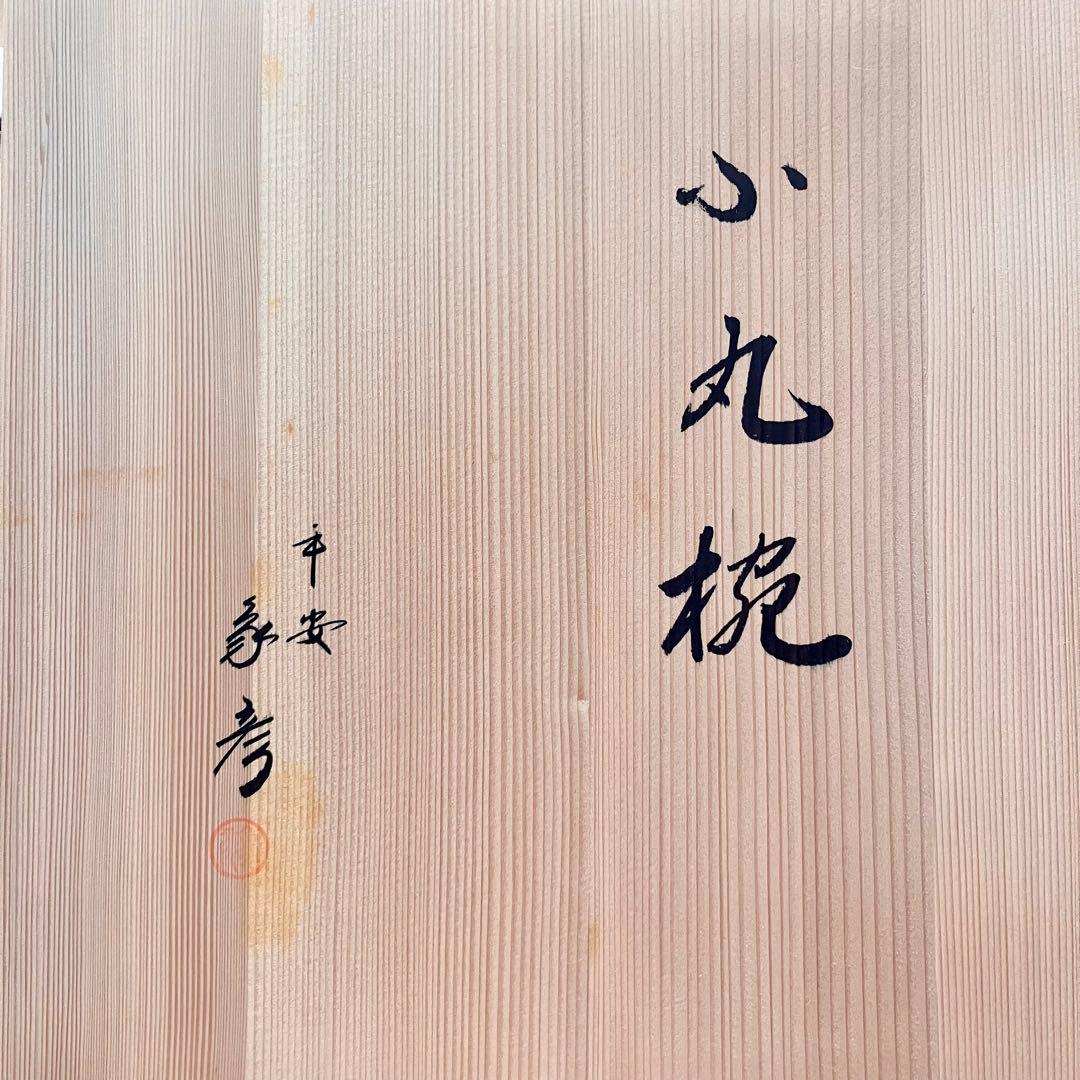 小丸椀
平安
象彦